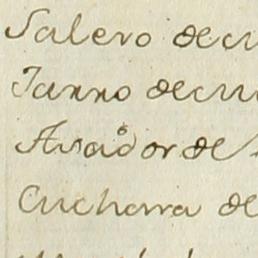 Salero de
Jarro de
Asador de
Cuchara de